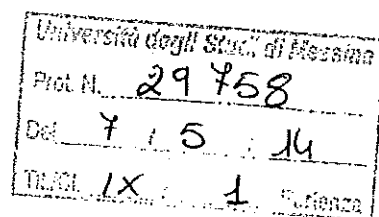 Università degli Studi di Messina
Prot. N. 29758
Del 7 / 5 / 14
Tit./Cl. IX / 1 Partenza